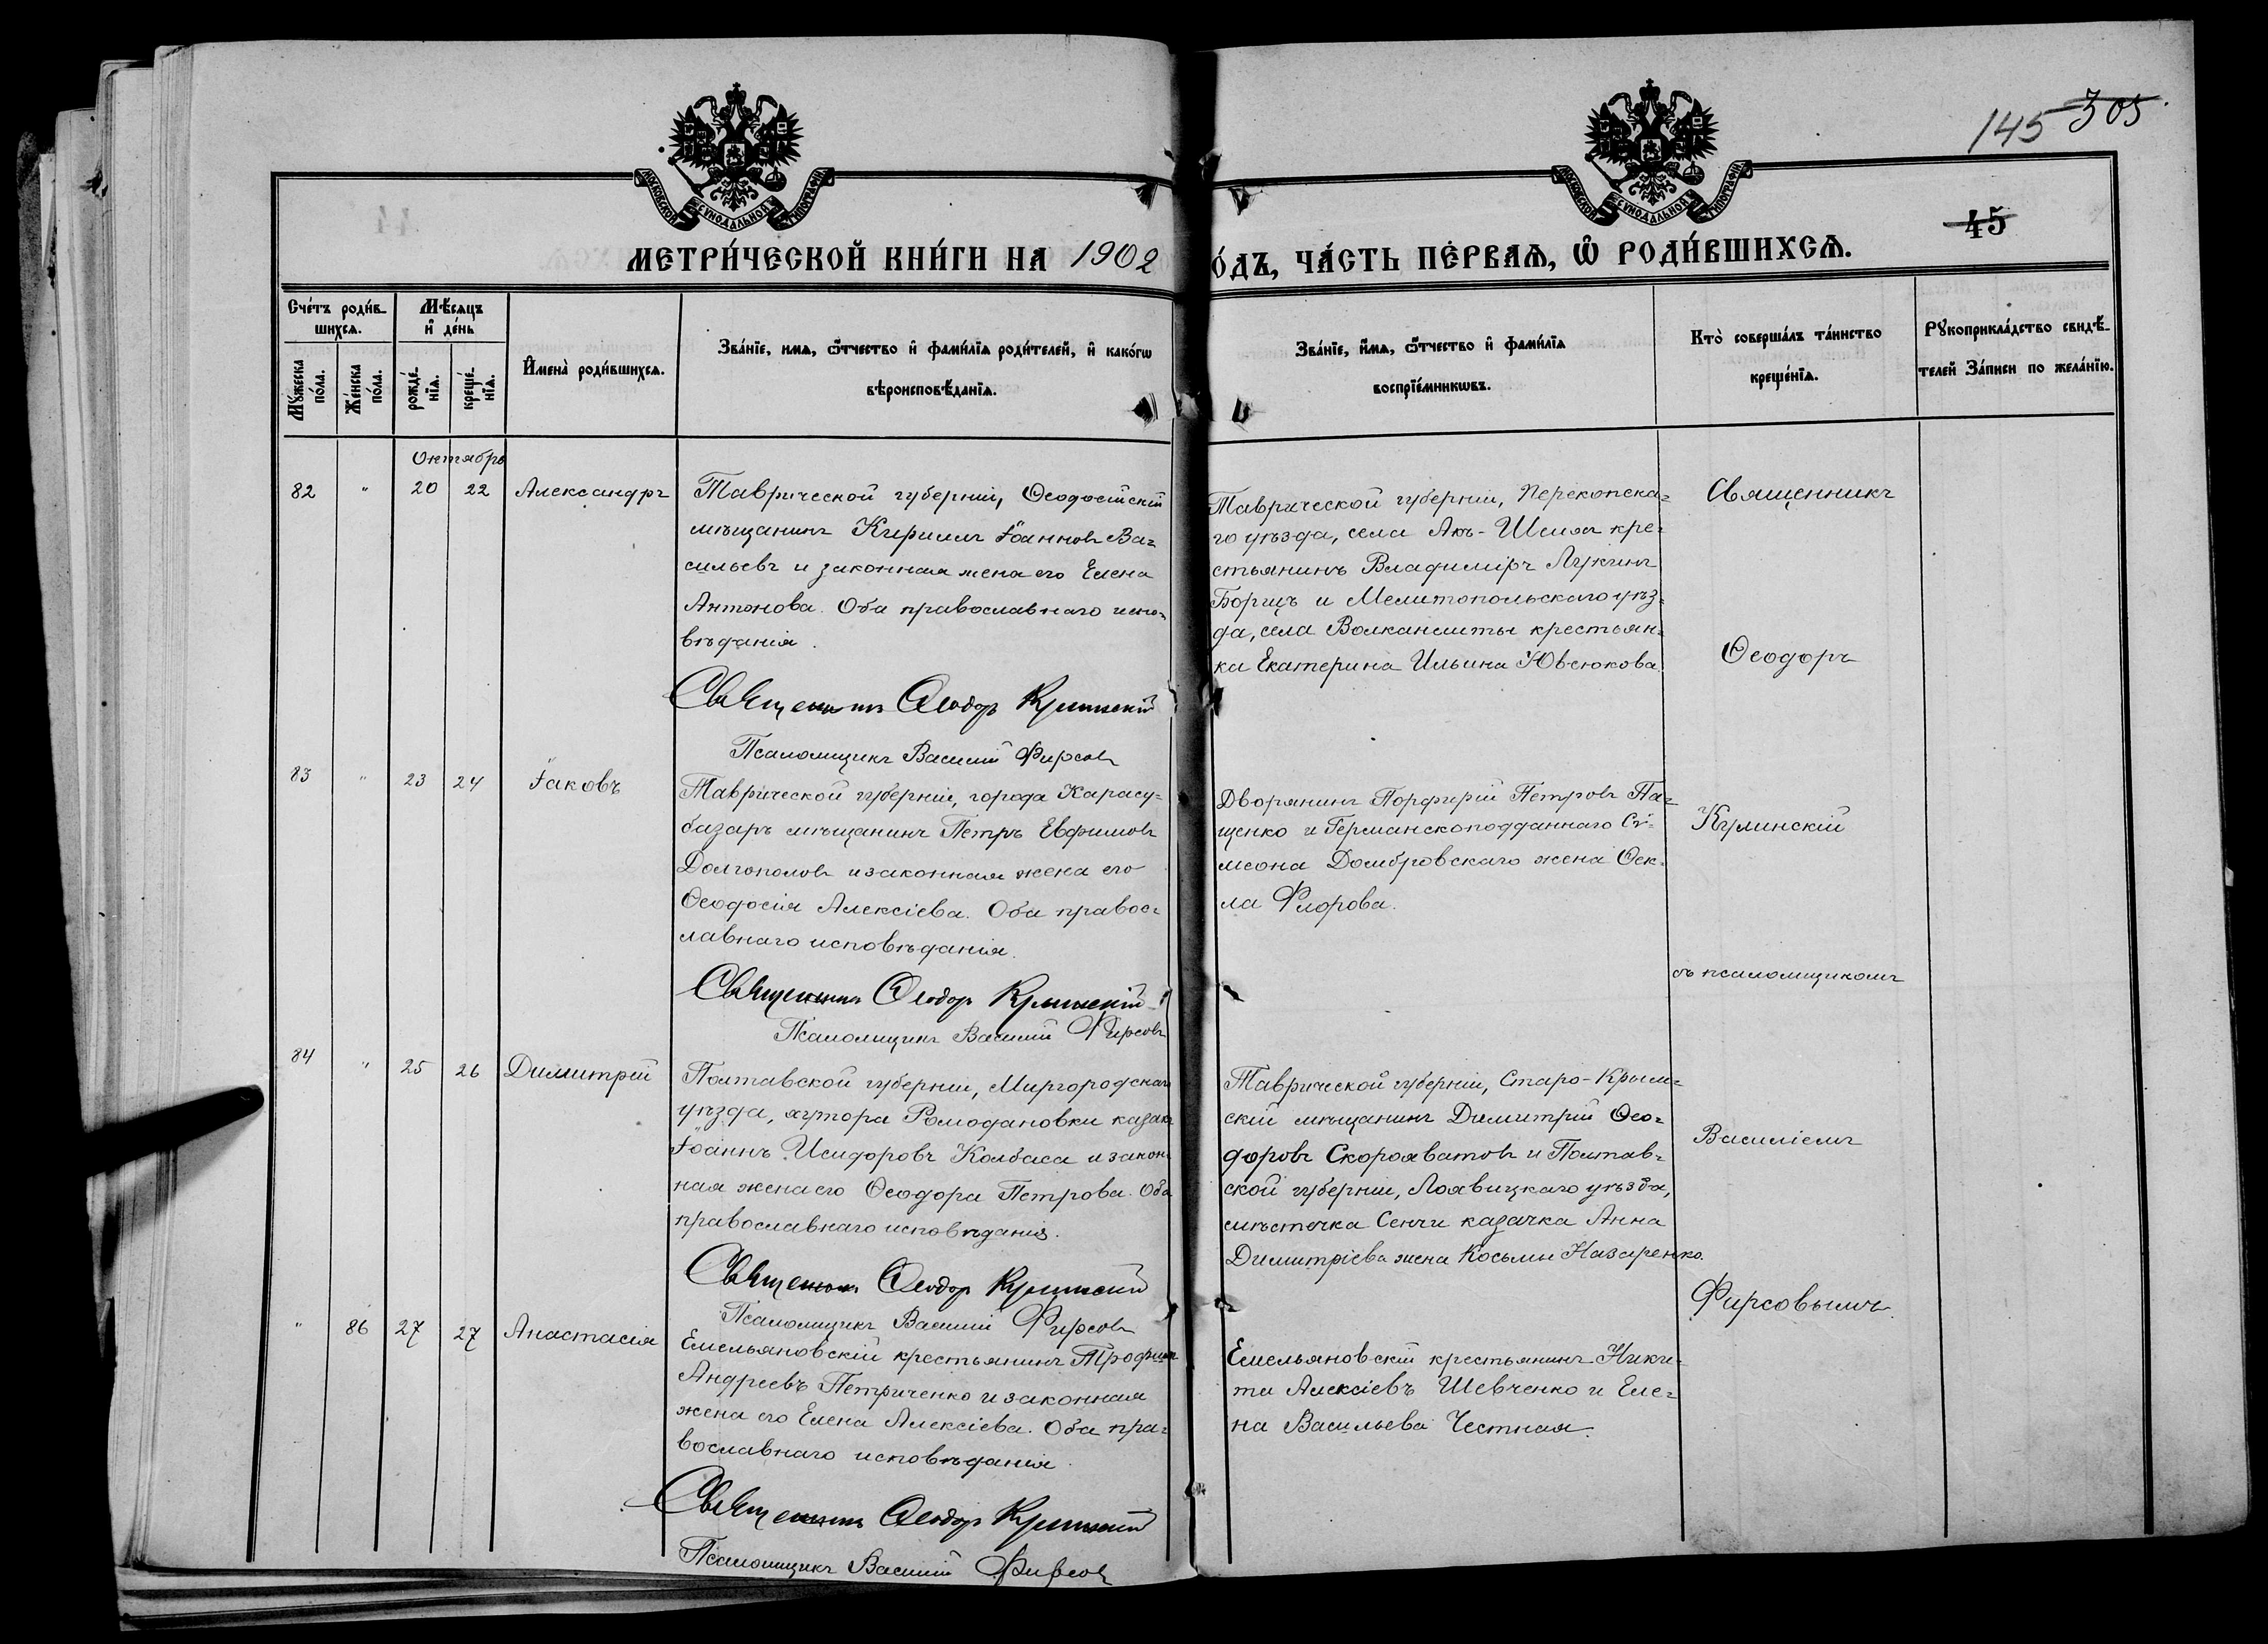 145 305
45
МОСКОВСКОЙ СѴНОДАЛЬНОЙ ТИПОГРАФІИ
МОСКОВСКОЙ СѴНОДАЛЬНОЙ ТИПОГРАФІИ
МЕТРИ́ЧЕСКОЙ КНИ́ГИ НА 1902
О́ДЪ, ЧА́СТЬ ПЕ́РВАѦ, Ѽ РОДИ́ВШИХСѦ.
Сче́тъ роди́в-
шихсѧ.
Мꙋ́жеска по́ла.
Же́нска по́ла.
Мѣ́сѧцъ
и҆ де́нь
рожде́-
нїѧ.
креще́-
нїѧ.
И҆мена̀ роди́вшихсѧ.
Зва́нїе, имѧ, ѻ҆́тчество и҆ фами́лїѧ роди́телей, и҆ како́гѡ
вѣроисповѣ́данїѧ.
Зва́нїе, и҆́мѧ, ѻ҆́тчество и҆ фами́лїѧ
воспрїе́мникѡвъ.
Кто̀ соверша́лъ та́инство
креще́нїѧ.
Рꙋкоприкла́дство свидѣ́-
телей За́писи по жела́нїю.
Октябрь
82 " 20 22 Александръ
Таврической губерніи, Ѳеодосійскій
мѣщанинъ Кириллъ Іоанновъ Ва-
сильевъ и законная жена его Елена
Антонова. Оба православнаго испо-
вѣданія.
Священникъ Ѳеодоръ Кулинскій
Псаломщикъ Василій Фирсовъ
Таврической губерніи, Перекопска-
го уѣзда, села Акъ-Шеихъ кре-
стьянинъ Владиміръ Лукинъ
Борщъ и Мелитопольскаго уѣз-
да, села Волканешты крестьян-
ка Екатерина Ильина Ювсюкова.
Священникъ
Ѳеодоръ
83 " 23 24 Іаковъ
Таврической губерніи, города Карасу-
базаръ мѣщанинъ Петръ Евфимовъ
Долгополовъ и законная жена его
Ѳеодосія Алексіева. Оба правос-
лавнаго исповѣданія.
Священникъ Ѳеодоръ Кулинскій
Псаломщикъ Василій Фирсовъ
Дворянинъ Порфирій Петровъ Па-
щенко и Германскоподданнаго Си-
меона Домбровскаго жена Ѳек-
ла Флорова.
Кулинскій
съ псаломщикомъ
84 " 25 26 Димитрій
Полтавской губерніи, Миргородскаго
уѣзда, хутора Ромодановки казакъ
Іоаннъ Исидоровъ Колбаса и закон-
ная жена его Ѳеодора Петрова. Оба
православнаго исповѣданія.
Священникъ Ѳеодоръ Кулинскій
Псаломщикъ Василій Фирсовъ
Таврической губерніи, Старо-Крым-
скій мѣщанинъ Димитрій Ѳео-
доровъ Скорохватовъ и Полтав-
ской губерніи, Лохвицкаго уѣзда,
мѣстечка Сенчи казачка Анна
Димитріева жена Косьмы Назаренко.
Василіемъ
Фирсовымъ.
" 86 27 27 Анастасія
Емельяновскій крестьянинъ Трофимъ
Андреевъ Петриченко и законная
жена его Елена Алексіева. Оба пра-
вославнаго исповѣданія.
Священникъ Ѳеодоръ Кулинскій
Псаломщикъ Василій Фирсовъ
Емельяновскій крестьянинъ Ники-
та Алексіевъ Шевченко и Еле-
на Васильева Честная.